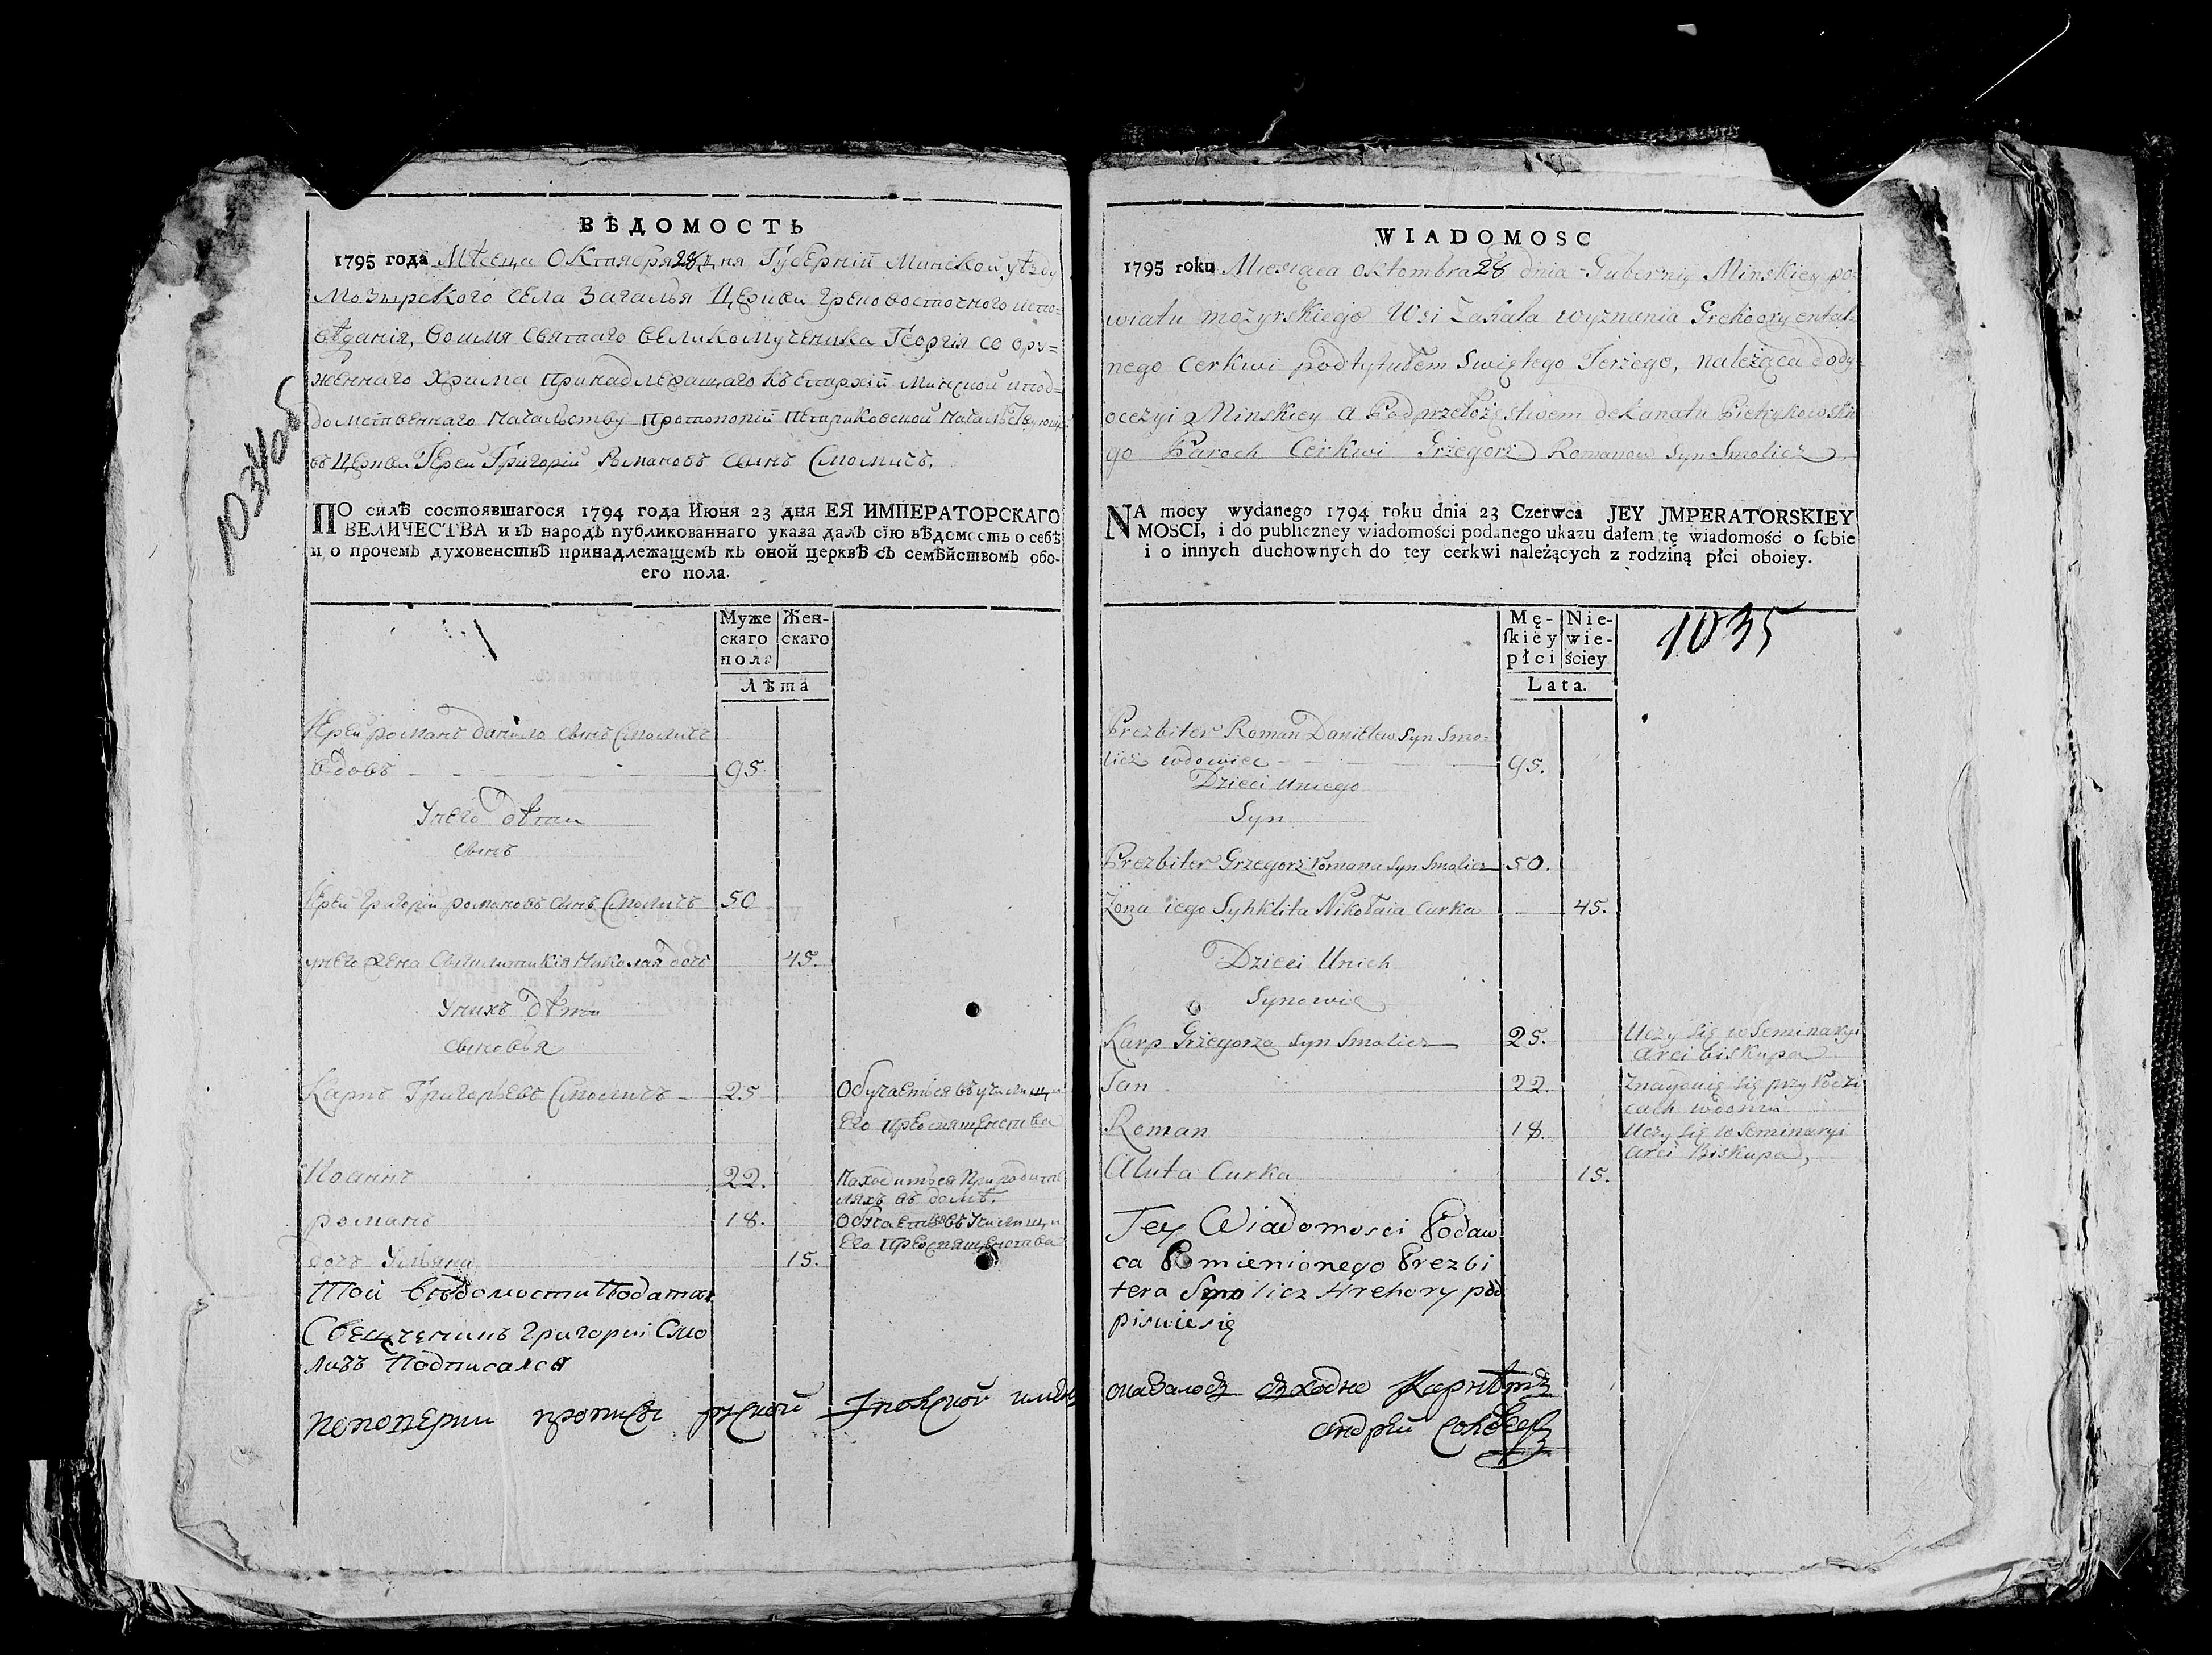 ВѢДОМОСТЬ
1795 года Мѣсеца Октября 28 дня Губерніи Минской уѣзду
Мозырского села Загалья Церкви грековосточного испо=
вѣданія, во имя святаго великомученика Георгія со ору=
женнаго Храма принадлежащаго къ Епархіи Минской и под=
домственнаго начальству протопопіи Петриковской
въ Церкви Іерей Григорій Романовъ сынъ Смоличъ.
ПО силѣ состоявшагося 1794 года Июня 23 дня ЕЯ ИМПЕРАТОРСКАГО
ВЕЛИЧЕСТВА и въ народъ публикованнаго указа далъ сїю вѣдомость о себѣ
и о прочемъ духовенствѣ принадлежащемъ къ оной церквѣ съ семѣйствомъ обо-
его пола.
Муже
скаго
пола
Жен-
скаго
Лѣта
Іерей романъ данило сынъ Смоличъ
вдовъ 95.
У него дѣти
сынъ
Іерей григорій романовъ сынъ Смоличъ 50
у него жена Николая дочь 45.
У нихъ дѣти
сыновья
Карпъ Григорьевъ Смоличъ 25 Обучаеться въ училищи
Его преосвященства
Иоаннъ 22. Находиться при родите
ляхъ въ домѣ.
романъ 18. Обучаеться въ училищи
Его преосвященства
дочь Ульяна 15.
Той вѣдомости Податель
Свещченикъ григорій Смо
личъ Подписалсѧ
1035
WIADOMOSC
1795 roku Miesiąca oktombra 28 dnia Gubernij Minskiey po-
wiatu mozyrskiego Wsi Zahala wyznania Grekoory ental-
nego Cerkwi podtytułem Swiętego Jerzego, należąca do dy-
ocezyi Minskiey a Podprzełożestwem dekanatu Pietrykowskie
go Paroch Cerkwi Grzegorz Romanow Syn Smolicz
NA mocy wydanego 1794 roku dnia 23 Czerwca JEY JMPERATORSKIEY
MOSCI, i do publiczney wiadomości podanego ukazu dałem tę wiadomość o sobie
i o innych duchownych do tey cerkwi należących z rodziną płci oboiey.
Mę-
skiey
płci
Nie-
wie-
ściey
Lata.
Prezbiter Roman Daniłew Syn Smo-
licz wdowiec 95.
Dzieci Uniego
Syn
Prezbiter Grzegorz Romana Syn Smolicz 50.
Żona iego Synklita Nikołaia Curka 45.
Dzieci Unich
Synowie
Karp Grzegorza Syn Smolicz 25. Uczy się w Seminaryi
Arci biskupa
Jan 22. Znayduię się przy Rodzi
cach wdomu
Roman 18. Uczy się w Seminaryi
Arci Biskupa,
Aluta Curka 15.
Tey Wiadomosci Podaw
ca Pomienionego Prezbi
tera Smolicz Hrehory pod
pisuiesię
покоперти прописи руской
оказалось сходно
андрей